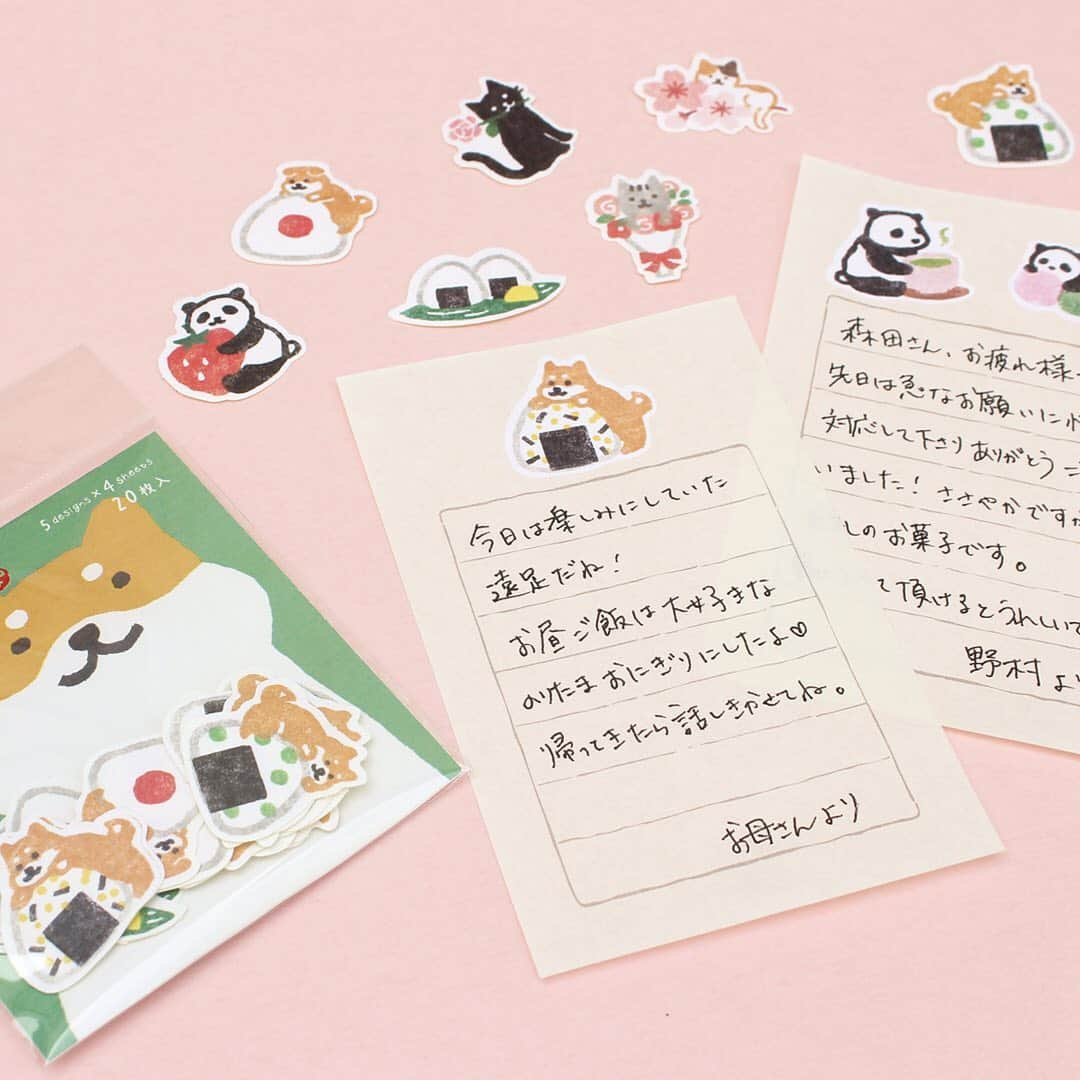 5 designs × 4 sheets
20枚入
今日は楽しみにしていた
遠足だね！
お昼ご飯は大好きな
のりたまおにぎりにしたよ♡
帰ってきたら話しきかせてね。
お母さんより
森田さん、お疲れ様
先日は急なお願いに
対応して下さりありがとう
いました！ささやかですが
しのお菓子です。
て頂けるとうれしいで
野村より